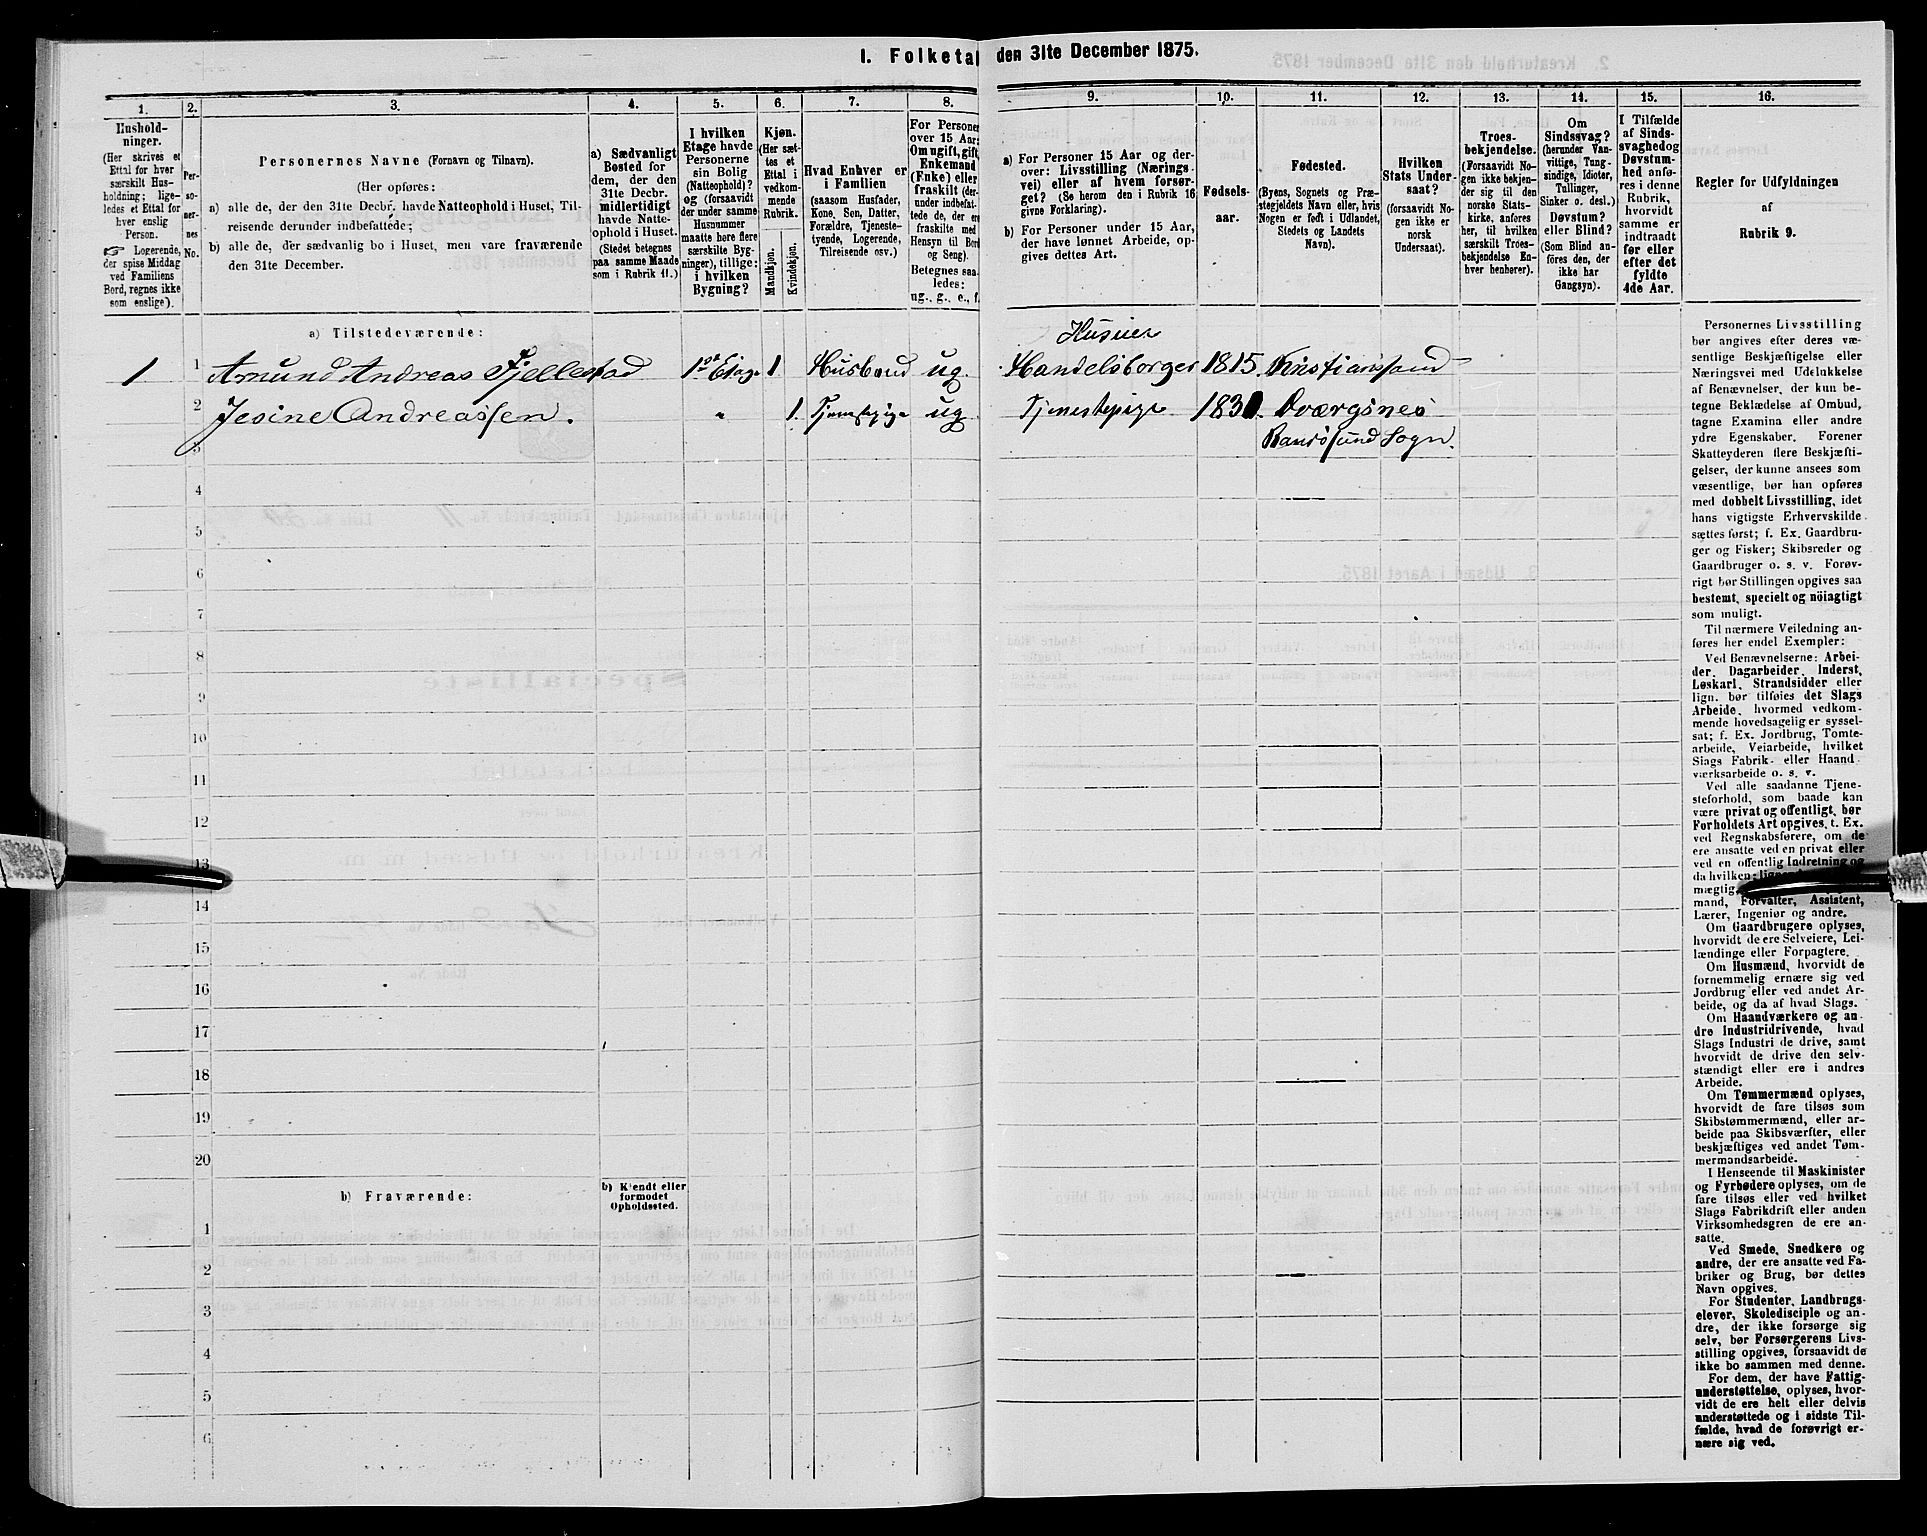 1. Folketal den 31te December 1875.
1.
2.
3.
4.
5.
6.
7.
8.
9.
10.
11.
12.
13.
14.
15.
16.
Hushold-
ninger.
(Her skrives et
Ettal for hver
særskilt Hus-
holdning; lige-
ledes et Ettal for
hver enslig
Person.
☞ Logerende,
der spise Middag
ved Familiens
Bord, regnes ikke
som enslige).
Per-
so-
ner-
nes
No.
Personernes Navne (Fornavn og Tilnavn).
(Her opføres:
a) alle de, der den 31te Decbr. havde Natteophold i Huset, Til-
reisende derunder indbefattede;
b) alle de, der sædvanlig bo i Huset, men vare fraværende
den 31te December.
a) Sædvanligt
Bosted for
dem, der den
31te Decbr.
midlertidigt
havde Natte-
ophold i Huset.
(Stedet betegnes
paa samme Maade
som i Rubrik 11.)
I hvilken
Etage havde
Personerne
sin Bolig
(Natteophold)?
og (forsaavidt
der under samme
Husnummer
maatte høre flere
særskilte Byg-
ninger), tillige:
i hvilken
Bygning?
Kjøn.
(Her sæt-
tes et
Ettal i
vedkom-
mende
Rubrik.
Mandkjøn.
Kvindekjøn.
Hvad Enhver er
i Familien
(saasom Husfader,
Kone, Søn, Datter,
Forældre, Tjeneste-
tyende, Logerende,
Tilreisende osv.)
For Personer
over 15 Aar:
Om ugift, gift,
Enkemand
(Enke) eller
fraskilt (der-
under indbefat-
tede de, der ere
fraskilte med
Hensyn til Bord
og Seng).
Betegnes saa-
ledes:
ug., g., e., f.
a) For Personer 15 Aar og der-
over: Livsstilling (Nærings-
vei) eller af hvem forsør-
get? (Se herom den i Rubrik 16
givne Forklaring).
b) For Personer under 15 Aar,
der have lønnet Arbeide, op-
gives dettes Art.
Fødsels-
aar.
Fødested.
(Byens, Sognets og Præ-
stegjeldets Navn eller, hvis
Nogen er født i Udlandet,
Stedets og Landets
Navn).
Hvilken
Stats Under-
saat?
(forsaavidt No-
gen ikke er
norsk
Undersaat).
Troes-
bekjendelse.
(Forsaavidt No-
gen ikke bekjen-
der sig til den
norske Stats-
kirke, anføres
her, til hvilken
særskilt Troes-
bekjendelse En-
hver henhører).
Om
Sindssvag?
(herunder Van-
vittige, Tung-
sindige, Idioter,
Tullinger,
Sinker o. desl.)
Døvstum?
eller Blind?
(Som Blind an-
føres den, der
ikke har
Gangsyn).
I Tilfælde
af Sinds-
svaghed og
Døvstum-
hed anfø-
res i denne
Rubrik,
hvorvidt
samme er
indtraadt
før eller
efter det
fyldte
4de Aar.
Regler for Udfyldningen
af
Rubrik 9.
a) Tilstedeværende:
Huseier
1 1 Amund Andreas Fjellestad 1ste Etage 1 Husbond ug. Handelsborger 1815. Kristianssand
2 Jesine Andreassen. " 1. Tjenestepige ug Tjenestepige Dværgsnes
3 Randøsund Sogn.
4
5
6
7
8
9
10
11
12
13
14
15
16
17
18
19
20
b) Fraværende:
b) Kjendt eller
formodet
Opholdssted.
1
2
3
4
5
6
Personernes Livsstilling
bør angives efter deres væ-
sentlige Beskjæftigelse eller
Næringsvei med Udelukkelse
af Benævnelser, der kun be-
tegne Beklædelse af Ombud,
tagne Examina eller andre
ydre Egenskaber. Forener
Skatteyderen flere Beskjæfti-
gelser, der kunne ansees som
væsentlige, bør han opføres
med dobbelt Livsstilling, idet
hans vigtigste Erhvervskilde
sættes først; f. Ex. Gaardbru-
ger og Fisker; Skibsreder og
Gaardbruger o. s. v. Forøv-
rigt bør Stillingen opgives saa
bestemt, specielt og nøiagtigt
som muligt.
Til nærmere Veiledning an-
føres her endel Exempler:
Ved Benævnelserne: Arbei-
der, Dagarbeider, Inderst,
Løskarl, Strandsidder eller
lign. bør tilføies det Slags
Arbeide, hvormed vedkom-
mende hovedsagelig er syssel-
sat; f. Ex. Jordbrug, Tomte-
arbeide, Veiarbeide, hvilket
Slags Fabrik- eller Haand-
værksarbeide o. s. v.
Ved alle saadanne Tjene-
steforhold, som baade kan
være privat og offentligt, bør
Forholdets Art opgives, t. Ex.
ved Regnskabsførere, om de
ere ansatte ved en privat eller
ved en offentlig Indretning og
da hvilken;
mægtig,
mand, Forvalter, Assistent,
Lærer, Ingeniør og andre.
Om Gaardbrugere oplyses,
hvorvidt de ere Selveiere, Lei-
lændinge eller Forpagtere.
Om Husmænd, hvorvidt de
fornemmelig ernære sig ved
Jordbrug eller ved andet Ar-
beide, og da af hvad Slags.
Om Haandværkere og an-
dre Industridrivende, hvad
Slags Industri de drive, samt
hvorvidt de drive den selv-
stændigt eller ere i andres
Arbeide.
Om Tømmermænd oplyses,
hvorvidt de fare tilsøs som
Skibstømmermænd, eller ar-
beide paa Skibsværfter, eller
beskjæftiges ved andet Tøm-
mermandsarbeide.
I Henseende til Maskinister
og Fyrbødere oplyses, om de
fare tilsøs eller ved hvilket
Slags Fabrikdrift eller anden
Virksomhedsgren de ere an-
satte.
Ved Smede, Snedkere og
andre, der ere ansatte ved Fa-
briker og Brug, bør dettes
Navn opgives.
For Studenter, Landbrugs-
elever, Skoledisciple og an-
dre, der ikke forsørge sig
selv, bør Forsørgerens Livs-
stilling opgives, forsaavidt de
ikke bo sammen med denne.
For dem, der have Fattig-
understøttelse, oplyses, hvor-
vidt de ere helt eller delvis
understøttede og i sidste Til-
fælde, hvad de forøvrigt er-
nære sig ved.